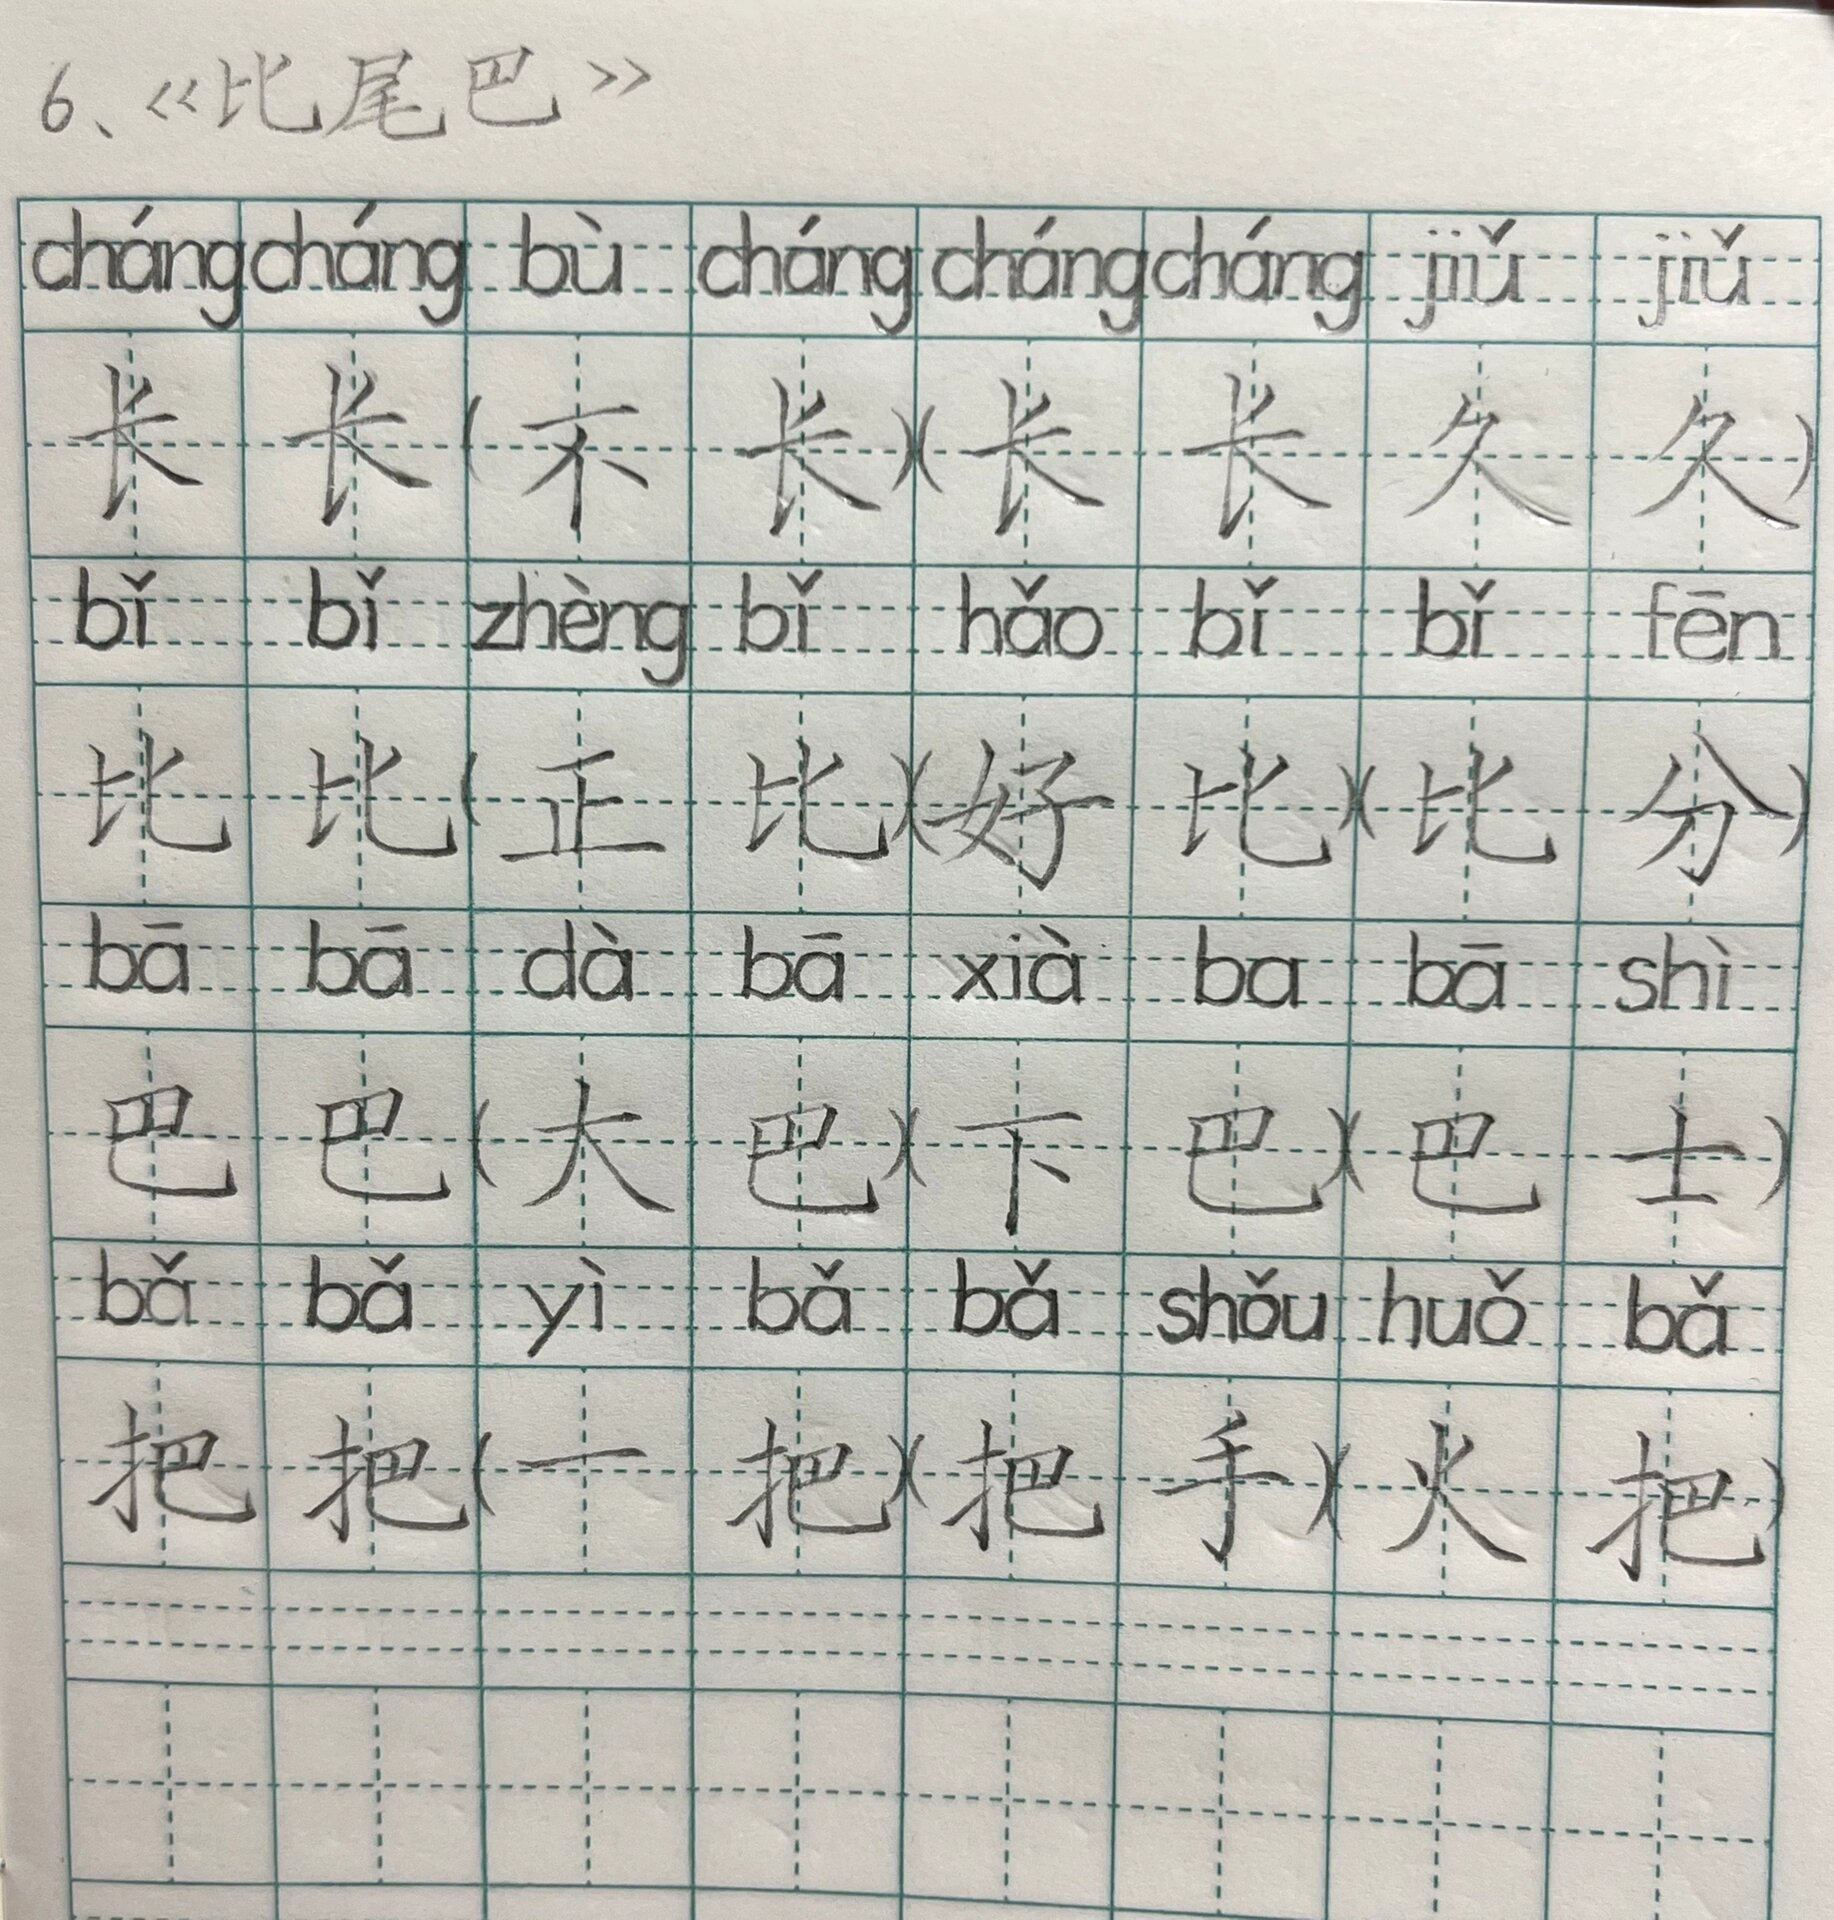 6、《比尾巴》
cháng cháng bù cháng cháng cháng jiǔ jiǔ
长 长 (不 长)(长 长 久 久)
bǐ bǐ zhèng bǐ hǎo bǐ bǐ fēn
比 比 (正 比)(好 比)(比 分)
bā bā dà bā xià ba bā shì
巴 巴 (大 巴)(下 巴)(巴 士)
bǎ bǎ yì bǎ bǎ shǒu huǒ bǎ
把 把 (一 把)(把 手)(火 把)